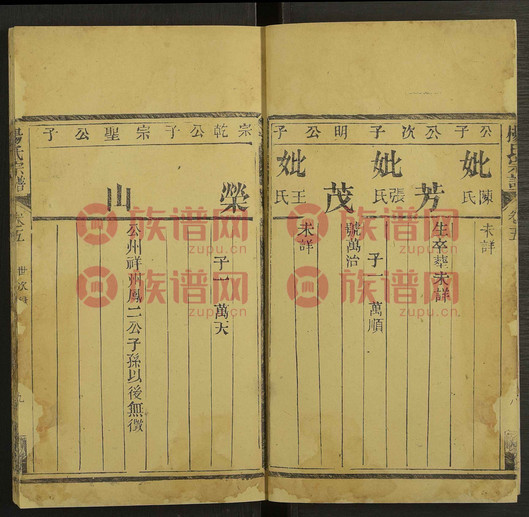 公子 次公子 明公子
妣陳氏
未詳
芳
生卒葬未詳
妣張氏
子一 萬順
茂
號萬治
妣王氏
未詳
宗乾公子 宗聖公子
榮
子一 萬天
山
公州祥州鳳二公子孫以後無徵
楊氏宗譜
卷五
世次
九
族谱网
zupu.cn
族谱网
zupu.cn
族谱网
zupu.cn
族谱网
zupu.cn